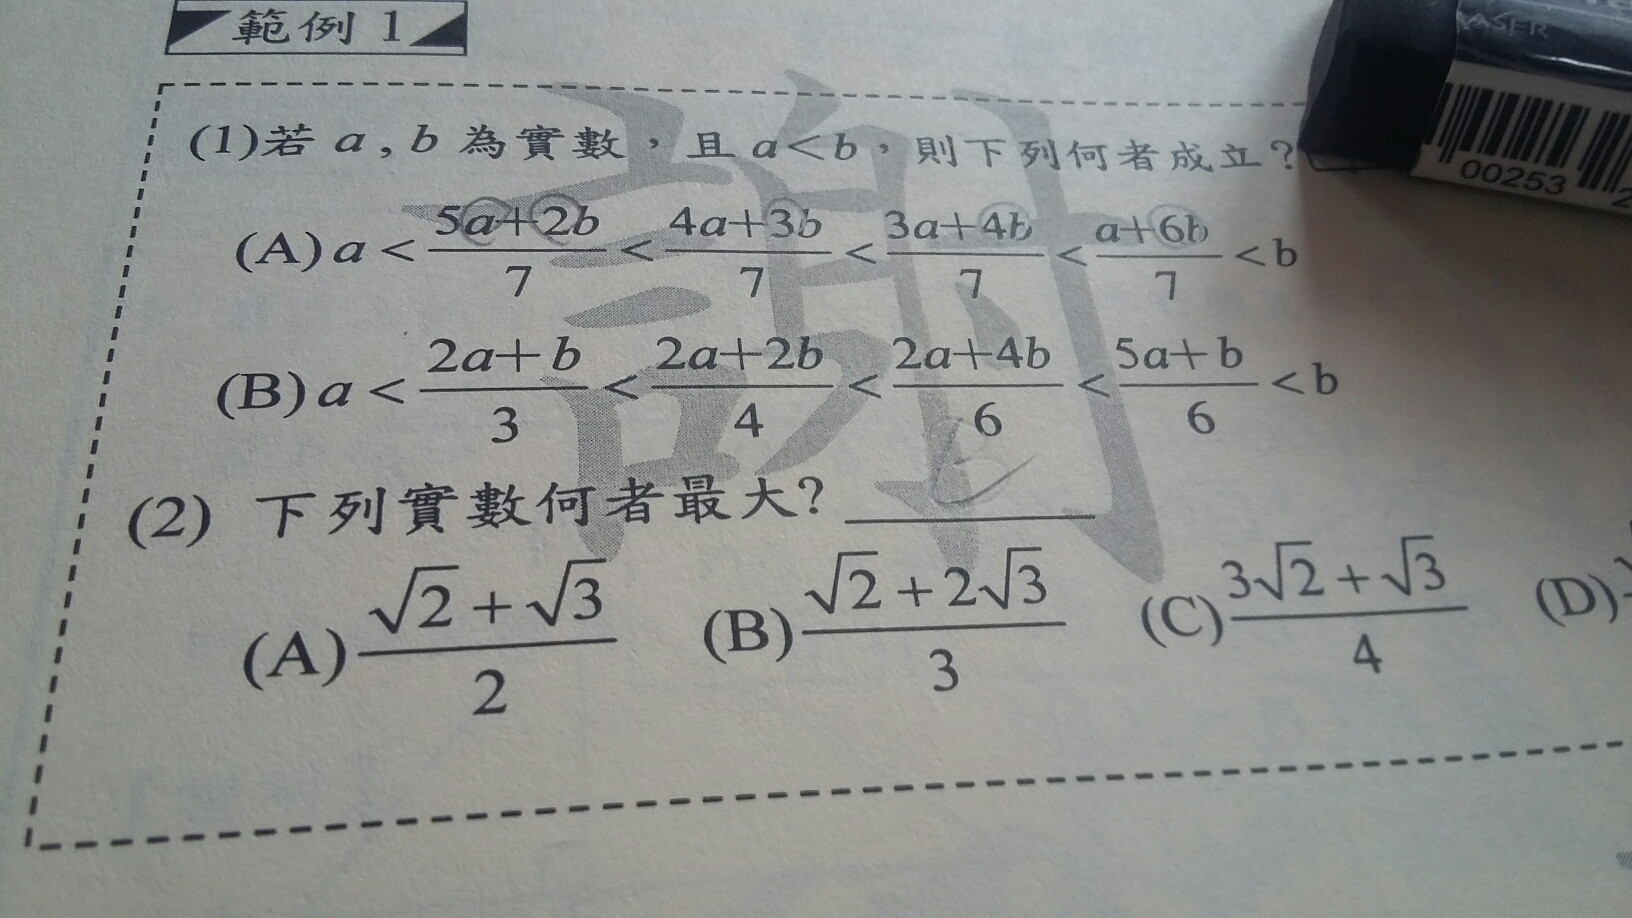 範例 1
(1)若 a , b 為實數，且 a<b，則下列何者成立？
(A) a < \frac{5a+2b}{7} < \frac{4a+3b}{7} < \frac{3a+4b}{7} < \frac{a+6b}{7} < b
(B) a < \frac{2a+b}{3} < \frac{2a+2b}{4} < \frac{2a+4b}{6} < \frac{5a+b}{6} < b
(2) 下列實數何者最大？
(A) \frac{\sqrt{2}+\sqrt{3}}{2} (B) \frac{\sqrt{2}+2\sqrt{3}}{3} (C) \frac{3\sqrt{2}+\sqrt{3}}{4} (D)
ERASER
00253 2